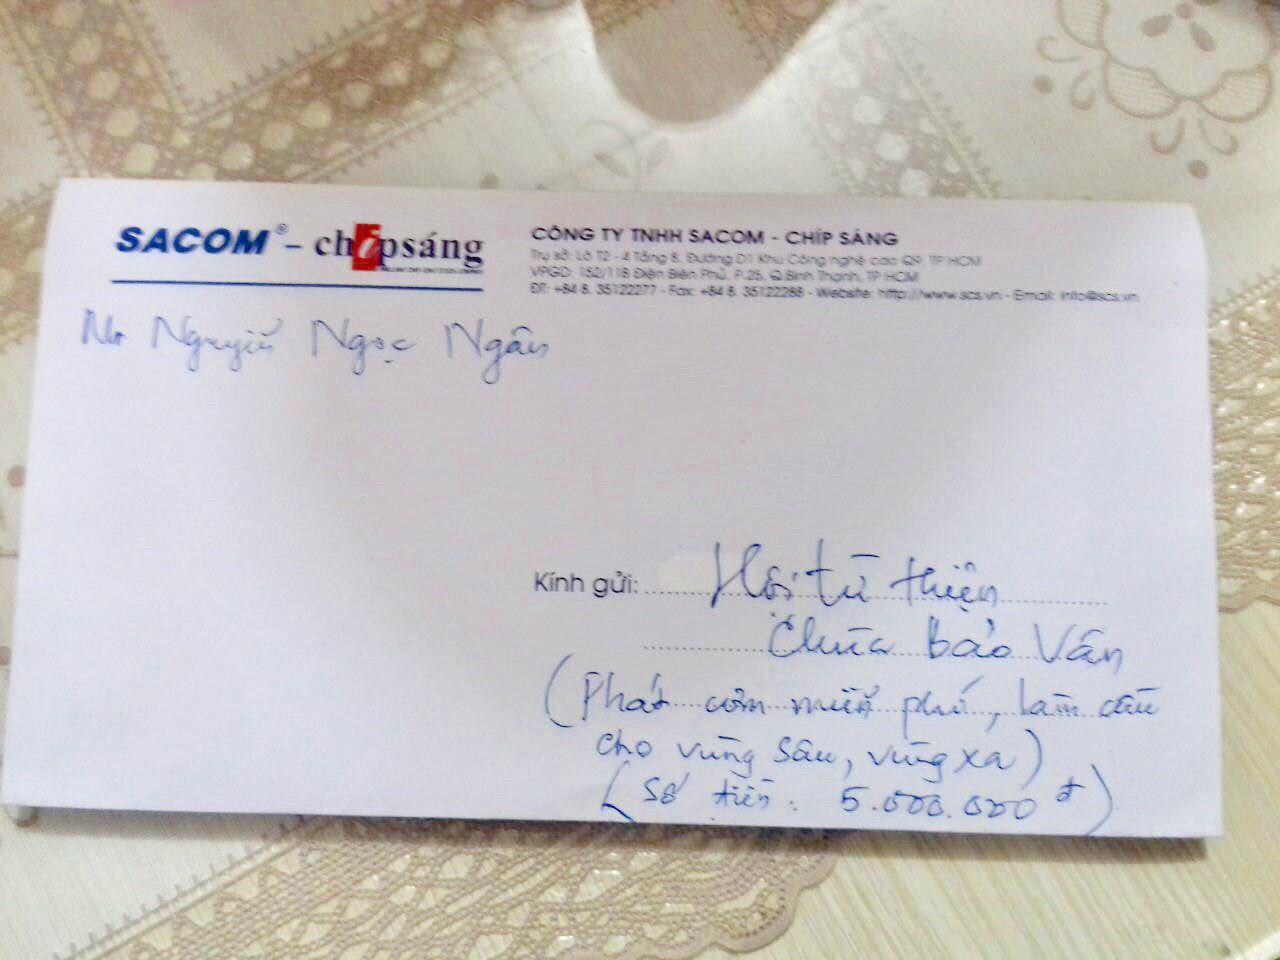 SACOM® - chipsáng
CÔNG TY TNHH SACOM - CHÍP SÁNG
Trụ sở: Lô T2 - 4 Tầng 8, Đường D1 Khu Công nghệ cao Q9, TP HCM
VPGD: 152/11B Điện Biên Phủ, P.25, Q.Bình Thạnh, TP HCM
ĐT: +84 8. 35122277 - Fax: +84 8. 35122288 - Website: http://www.scs.vn - Email: info@scs.vn
Mr Nguyễn Ngọc Ngân
Kính gửi: Hội từ thiện
Chùa Bảo Vân
(Phát cơm miễn phí, làm cầu
cho vùng sâu, vùng xa)
(Số tiền: 5.000.000đ)